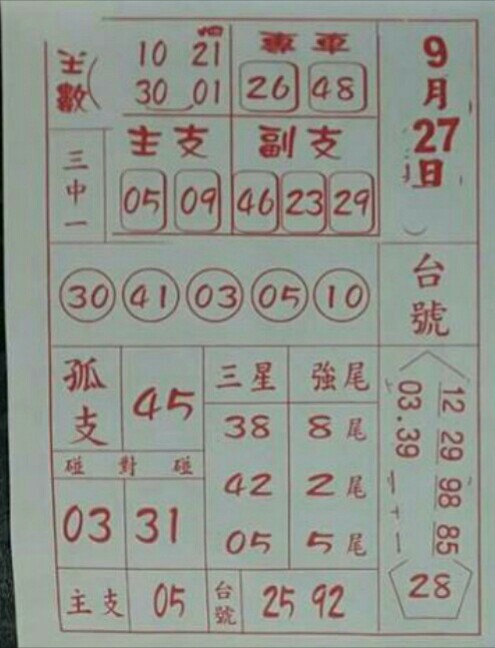 主數
10 21
30 01
專車
26 48
9月27日
三中一
主支
05 09
副支
46 23 29
30 41 03 05 10
台號
孤支
45
三星 強尾
38 8尾
42 2尾
05 5尾
碰對碰
03 31
12 29 98 85
03.39
28
主支 05
台號 25 92